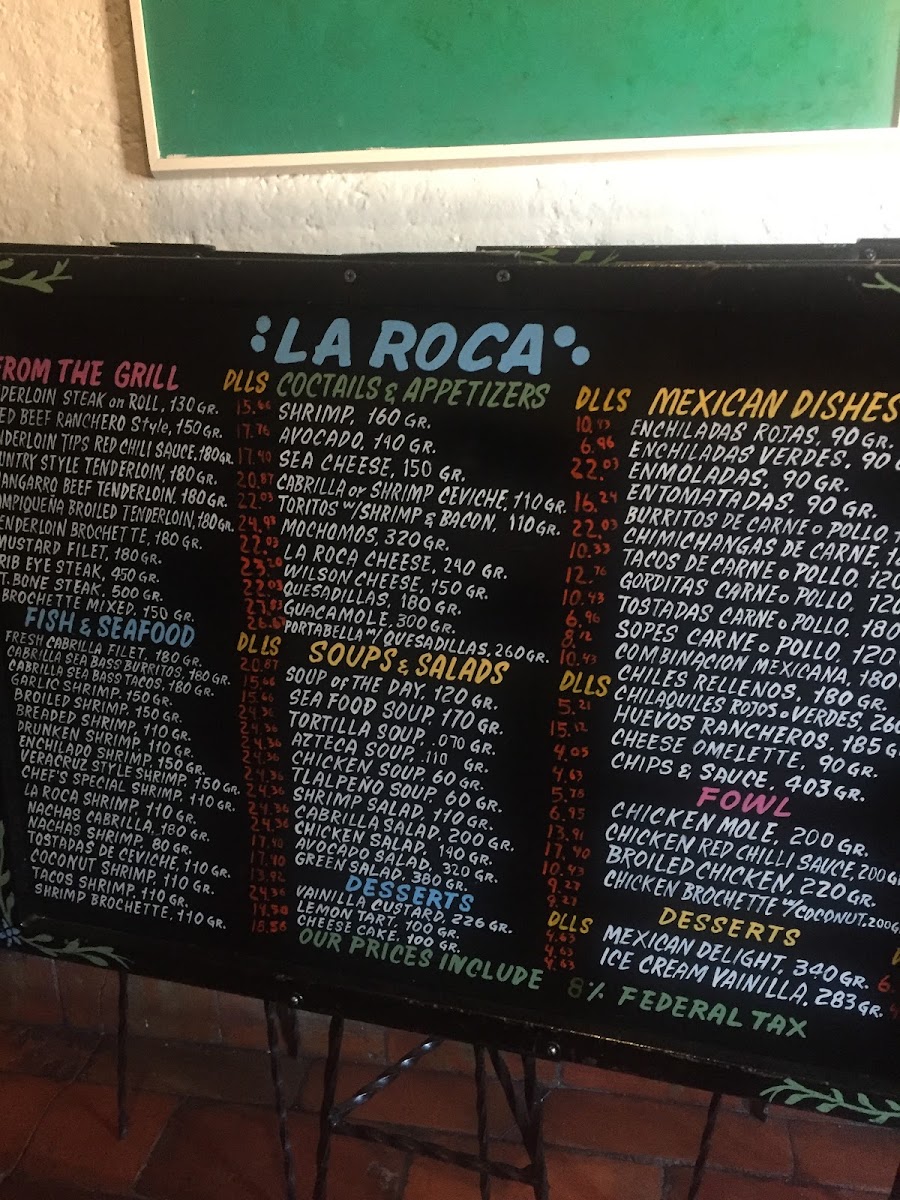 LA ROCA
FROM THE GRILL DLLS
DERLOIN STEAK on ROLL, 130 GR. 15.66
ED BEEF RANCHERO Style, 150 GR. 17.76
NDERLOIN TIPS RED CHILI SAUCE, 180 GR. 17.40
UNTRY STYLE TENDERLOIN, 180 GR. 20.87
ANGARRO BEEF TENDERLOIN, 180 GR. 22.03
MPIQUEÑA BROILED TENDERLOIN, 180 GR. 24.93
ENDERLOIN BROCHETTE, 180 GR. 22.03
MUSTARD FILET, 180 GR. 23.20
RIB EYE STEAK, 450 GR. 22.03
T. BONE STEAK, 500 GR. 27.83
BROCHETTE MIXED, 150 GR.
FISH & SEAFOOD DLLS
FRESH CABRILLA FILET, 180 GR. 20.87
CABRILLA SEA BASS BURRITOS, 180 GR. 15.66
CABRILLA SEA BASS TACOS, 180 GR. 15.66
GARLIC SHRIMP, 150 GR. 24.36
BROILED SHRIMP, 150 GR. 24.36
BREADED SHRIMP, 110 GR. 24.36
DRUNKEN SHRIMP, 110 GR. 24.36
ENCHILADO SHRIMP, 150 GR. 24.36
VERACRUZ STYLE SHRIMP, 150 GR. 24.36
CHEF'S SPECIAL SHRIMP, 110 GR. 24.36
LA ROCA SHRIMP, 110 GR. 24.36
NACHAS CABRILLA, 180 GR. 17.40
NACHAS SHRIMP, 80 GR. 17.40
TOSTADAS DE CEVICHE, 110 GR. 13.92
COCONUT SHRIMP, 110 GR. 24.36
TACOS SHRIMP, 110 GR.
SHRIMP BROCHETTE, 110 GR. 18.56
COCTAILS & APPETIZERS DLLS
SHRIMP, 160 GR. 10.43
AVOCADO, 140 GR. 6.96
SEA CHEESE, 150 GR. 22.03
CABRILLA or SHRIMP CEVICHE, 110 GR. 16.24
TORITOS w/SHRIMP & BACON, 110 GR. 22.03
MOCHOMOS, 320 GR. 10.33
LA ROCA CHEESE, 240 GR. 12.76
WILSON CHEESE, 150 GR. 10.43
QUESADILLAS, 180 GR. 6.96
GUACAMOLE, 300 GR. 8.12
PORTABELLA w/ QUESADILLAS, 260 GR. 10.43
SOUPS & SALADS DLLS
SOUP of THE DAY, 120 GR. 5.21
SEA FOOD SOUP 170 GR. 15.12
TORTILLA SOUP, .070 GR. 4.05
AZTECA SOUP, .110 GR. 4.63
CHICKEN SOUP, 60 GR. 5.78
TLALPEÑO SOUP, 60 GR. 6.95
SHRIMP SALAD, 110 GR. 13.91
CABRILLA SALAD, 200 GR. 17.40
CHICKEN SALAD, 140 GR. 10.43
AVOCADO SALAD, 320 GR. 9.27
GREEN SALAD, 380 GR. 9.27
DESSERTS DLLS
VAINILLA CUSTARD, 226 GR. 4.63
LEMON TART, 100 GR. 4.63
CHEESE CAKE, 100 GR. 4.63
MEXICAN DISHES
ENCHILADAS ROJAS, 90 GR.
ENCHILADAS VERDES, 90 G
ENMOLADAS, 90 GR.
ENTOMATADAS, 90 GR.
BURRITOS DE CARNE o POLLO,
CHIMICHANGAS DE CARNE, 1
TACOS DE CARNE o POLLO, 120
GORDITAS CARNE o POLLO, 120
TOSTADAS CARNE o POLLO, 180
SOPES CARNE o POLLO, 120
COMBINACION MEXICANA, 180
CHILES RELLENOS, 180 GR.
CHILAQUILES ROJOS o VERDES, 260
HUEVOS RANCHEROS, 185 G
CHEESE OMELETTE, 90 GR.
CHIPS & SAUCE, 403 GR.
FOWL
CHICKEN MOLE, 200 GR.
CHICKEN RED CHILLI SAUCE, 200 G
BROILED CHICKEN, 220 GR.
CHICKEN BROCHETTE w/COCONUT, 200 G
DESSERTS D
MEXICAN DELIGHT, 340 GR. 6.
ICE CREAM VAINILLA, 283 GR. 4
OUR PRICES INCLUDE 8% FEDERAL TAX